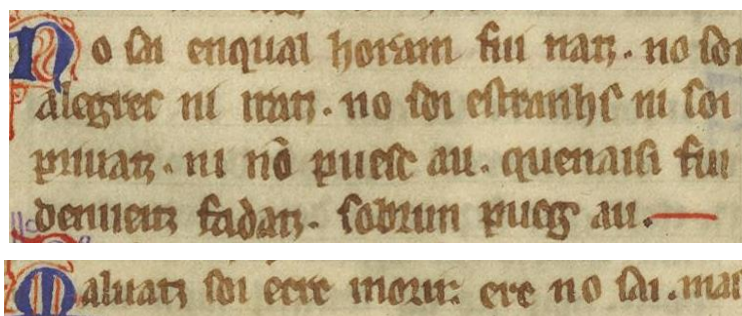 No sai enqual horam fui natz. no soi
alegres ni iratz. no soi estranhs ni soi
priuatz. ni nō puesc au. quenaisi fui
denueitz fadatz. sobrun pueg au.
Maluatz soi ecre morir: ere no sai. mas